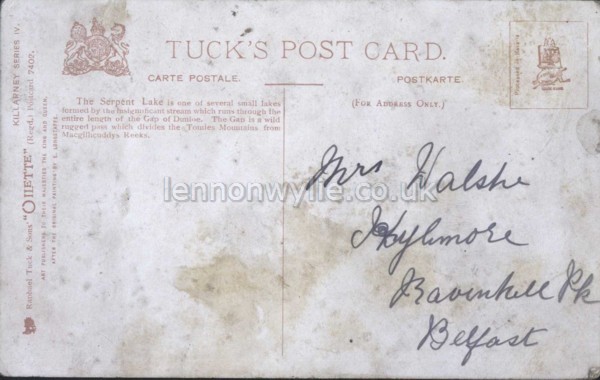 TUCK'S POST CARD.
CARTE POSTALE. POSTKARTE.
(FOR ADDRESS ONLY.)
The Serpent Lake is one of several small lakes
formed by the insignificant stream which runs through the
entire length of the Gap of Dunloe. The Gap is a wild
rugged pass which divides the Tomies Mountains from
Macgillicuddys Reeks.
KILLARNEY SERIES IV.
Raphael Tuck & Sons' "OILETTE" (Regd.) Postcard 7402.
ART PUBLISHERS TO THEIR MAJESTIES THE KING AND QUEEN.
lennonwylie.co.uk
Mrs Walshe
Kylemore
Ravenhill Pk
Belfast